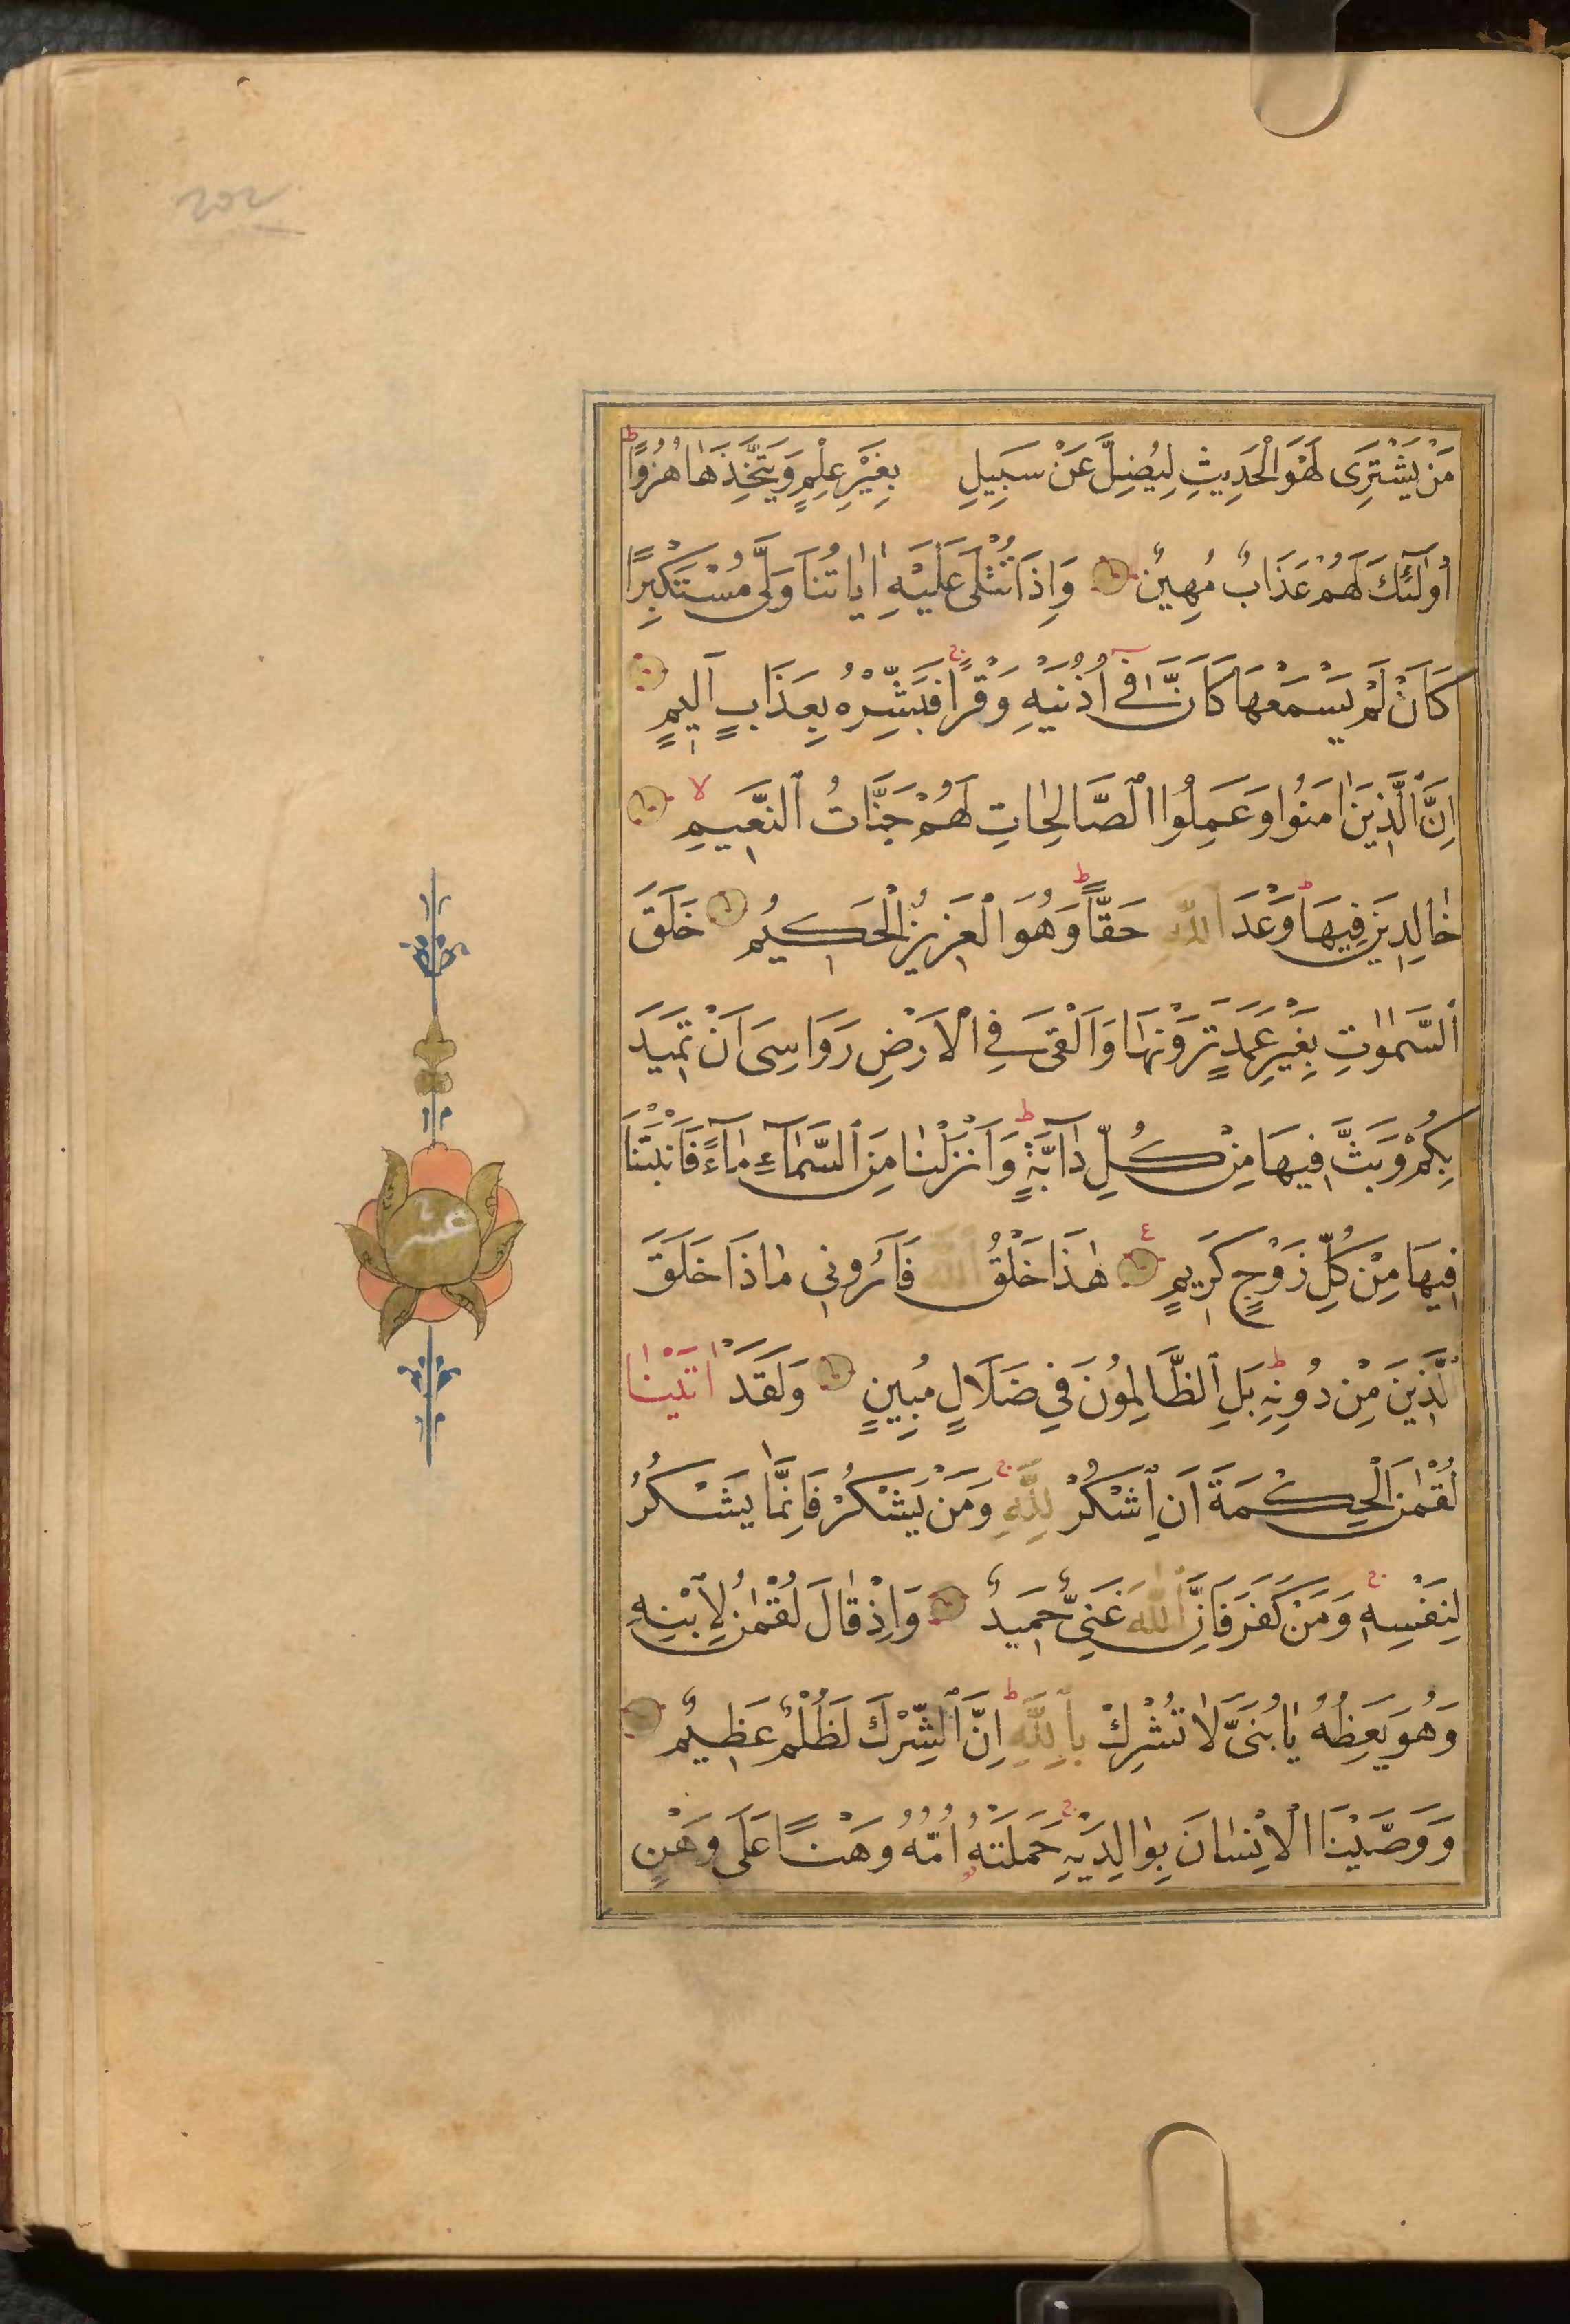 مَنْ يَشْتَرِى لَهْوَ الْحَدِيثِ لِيُضِلَّ عَنْ سَبِيلِ بِغَيْرِ عِلْمٍ وَيَتَّخِذَهَا هُزُوًا ط
اُولٰٓئِكَ لَهُمْ عَذَابٌ مُهِينٌ وَاِذَا تُتْلٰى عَلَيْهِ اٰيَاتُنَا وَلّٰى مُسْتَكْبِرًا
كَاَنْ لَمْ يَسْمَعْهَا كَاَنَّ فٓى اُذُنَيْهِ وَقْرًا ج فَبَشِّرْهُ بِعَذَابٍ اَلِيمٍ
اِنَّ ٱلَّذِينَ اٰمَنُوا وَعَمِلُوا ٱلصَّالِحَاتِ لَهُمْ جَنَّاتُ ٱلنَّعِيمِ لا
خَالِدِينَ فِيهَا ط وَعْدَ ٱللّٰهِ حَقًّا ط وَهُوَ ٱلْعَزِيزُ ٱلْحَكِيمُ خَلَقَ
ٱلسَّمٰوٰتِ بِغَيْرِ عَمَدٍ تَرَوْنَهَا وَاَلْقٰى فِى ٱلْاَرْضِ رَوَاسِىَ اَنْ تَمِيدَ
بِكُمْ وَبَثَّ فِيهَا مِنْ كُلِّ دَآبَّةٍ ط وَاَنْزَلْنَا مِنَ ٱلسَّمَآءِ مَآءً فَاَنْبَتْنَا
فِيهَا مِنْ كُلِّ زَوْجٍ كَرِيمٍ ع هٰذَا خَلْقُ ٱللّٰهِ فَاَرُونِى مَاذَا خَلَقَ
ٱلَّذِينَ مِنْ دُونِهِ ط بَلِ ٱلظَّالِمُونَ فِى ضَلَالٍ مُبِينٍ وَلَقَدْ اٰتَيْنَا
لُقْمٰنَ ٱلْحِكْمَةَ اَنِ ٱشْكُرْ لِلّٰهِ ج وَمَنْ يَشْكُرْ فَاِنَّمَا يَشْكُرُ
لِنَفْسِهِ ج وَمَنْ كَفَرَ فَاِنَّ ٱللّٰهَ غَنِىٌّ حَمِيدٌ وَاِذْ قَالَ لُقْمٰنُ لِٱبْنِهِ
وَهُوَ يَعِظُهُ يَا بُنَىَّ لَا تُشْرِكْ بِٱللّٰهِ ط اِنَّ ٱلشِّرْكَ لَظُلْمٌ عَظِيمٌ
وَوَصَّيْنَا ٱلْاِنْسَانَ بِوَالِدَيْهِ ج حَمَلَتْهُ اُمُّهُ وَهْنًا عَلٰى وَهْنٍ
عشر